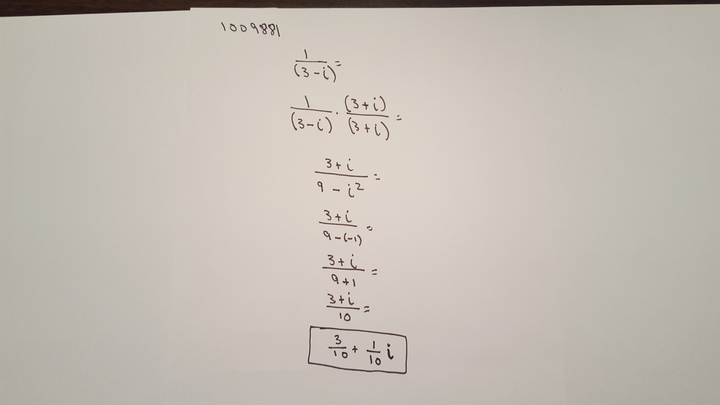 1009881
1/(3-i) =
1/(3-i) · (3+i)/(3+i) =
3+i/9-i² =
3+i/9-(-1) =
3+i/9+1 =
3+i/10 =
3/10 + 1/10 i